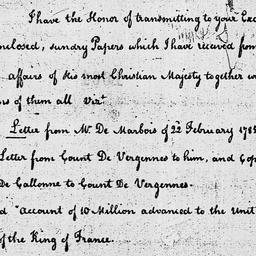 I have the Honor of transmitting to your Exc
nclosed, sundry Papers which I have received from
affairs of His most Christian Majesty together w
ns of them all Vizt
Letter from Mr. De Marbois of 22d February 1785
Letter from Count De Vergennes to him, and Cop
De Callonne to Count De Vergennes.
d "account of 10 Million advanced to the Unit
of the King of France.